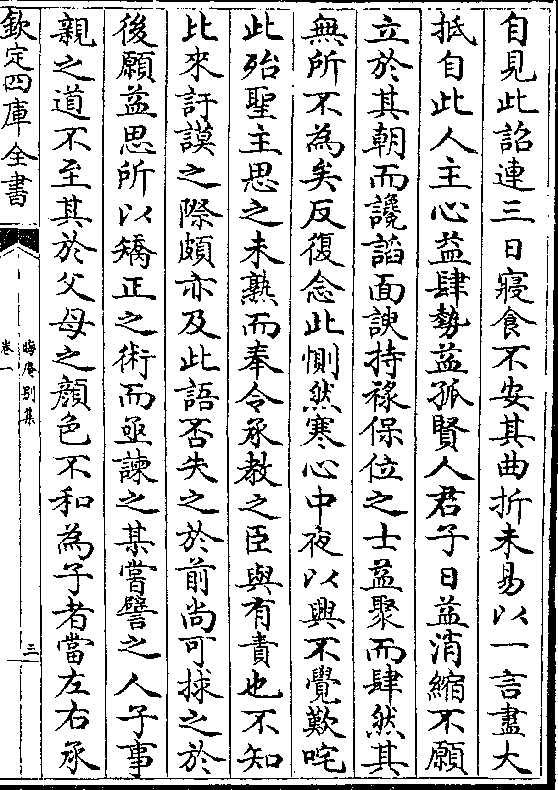 自見此詔連三日寢食不安其曲折未易以一言盡大
抵自此人主心益肆勢益孤賢人君子日益消縮不願
立於其朝而讒諂面諛持祿保位之士益聚而肆然其
無所不為矣反復念此惻然寒心中夜以興不覺歎咤
此殆聖主思之未熟而奉令承教之臣與有責也不知
比來訏謨之際頗亦及此語否失之於前尚可捄之於
後願益思所以矯正之術而亟諫之某嘗譬之人子事
親之道不至其於父母之顔色不和為子者當左右承
欽定四庫全書
晦庵別集
卷一
三